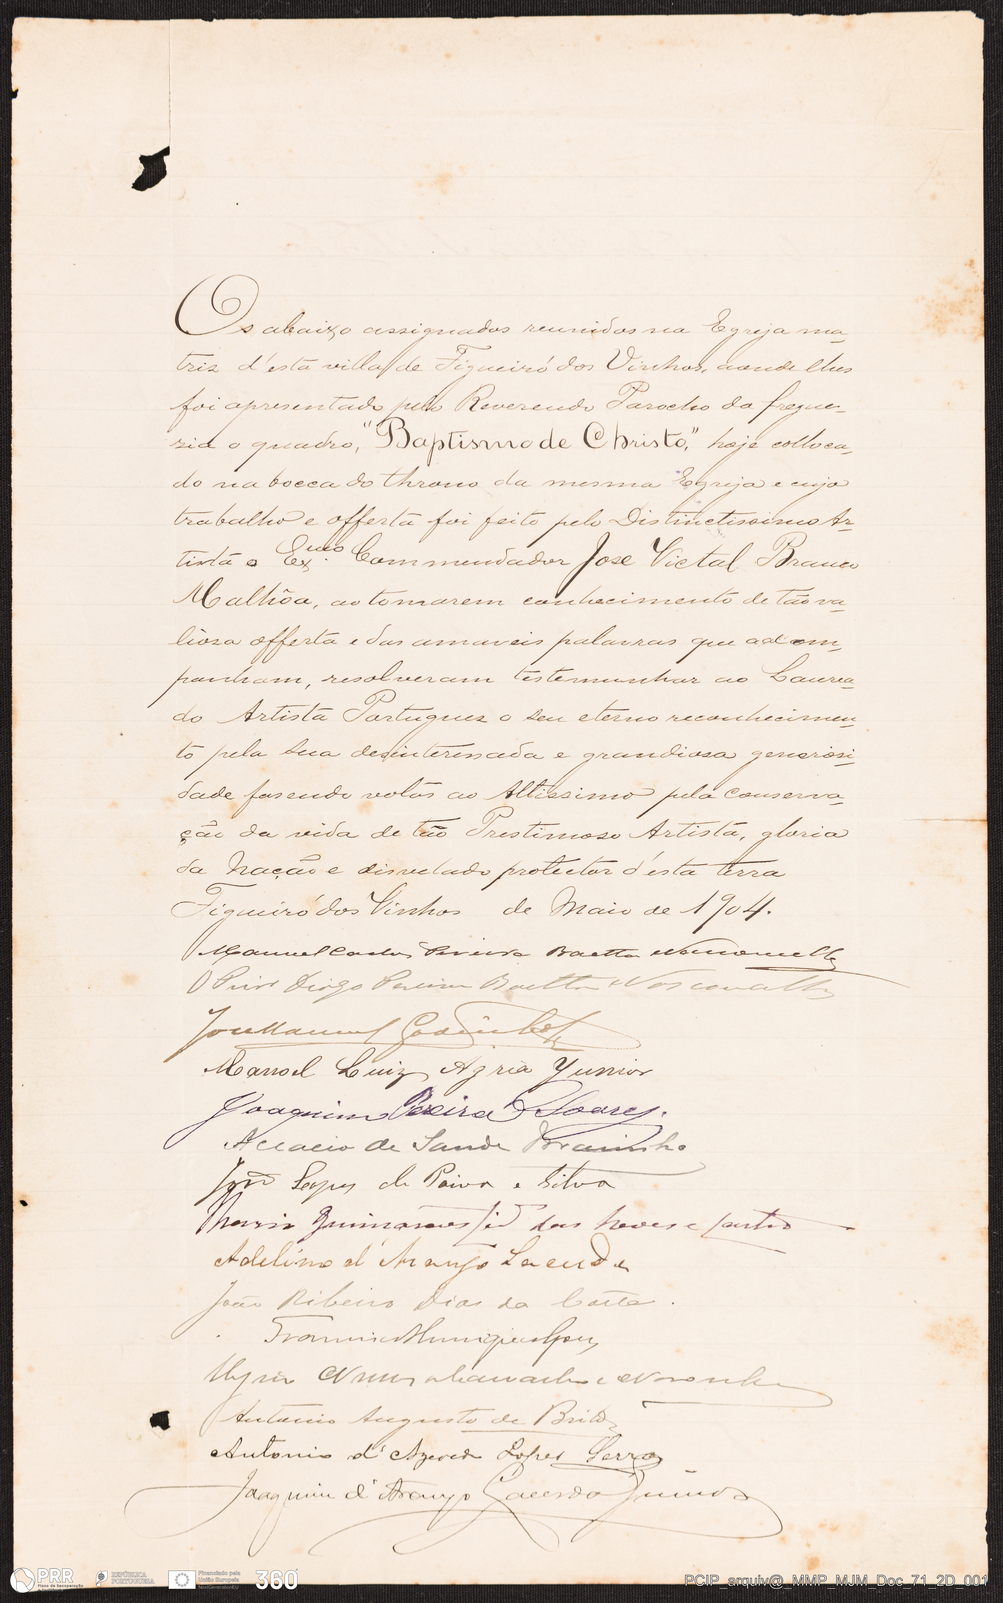 Os abaixo assignados reunidos na Egreja ma-
triz d'esta villa de Figueiró dos Vinhos, aonde lhes
foi apresentado pelo Reverendo Parocho da fregue-
zia o quadro, "Baptismo de Christo," hoje colloca-
do na bocca do throno da mesma Egreja e cujo
trabalho e offerta foi feito pelo Distinctissimo Ar-
tista o Exmo. Commendador José Victal Branco
Malhôa, ao tomarem conhecimento de tão va-
liosa offerta e das amaveis palavras que acom-
panham, resolveram testemunhar ao Laurea-
do Artista Portuguez o seu eterno reconhecimen-
to pela sua desinteressada e grandiosa generosi-
dade fasendo votos ao Altissimo pela conserva-
ção da vida de tão Prestimoso Artista, gloria
da Nação e disvelado protector d'esta terra
Figueiró dos Vinhos de Maio de 1904.
Manuel Carlos Pereira Baetta Vasconcellos
O Prior Diogo Pereira Baetta Vasconcellos
José Manuel Godinho
Manoel Luiz Agria Junior
Joaquim Pereira Soares.
Accacio de Sande Marinho
José Lopes de Paiva e Silva
Guimarães das Neves e Castro
Adelino d'Araujo Lacerda
João Ribeiro Dias da Costa.
Antonio Augusto de Brito
Antonio d'Azevedo Lopes Serra
Joaquim d'Araujo Lacerda Junior
PRR
Plano de Recuperação
REPÚBLICA
PORTUGUESA
Financiado pela
União Europeia
NextGenerationEU
360
PCIP_arquiv@_MMP_MJM_Doc_71_2D_001